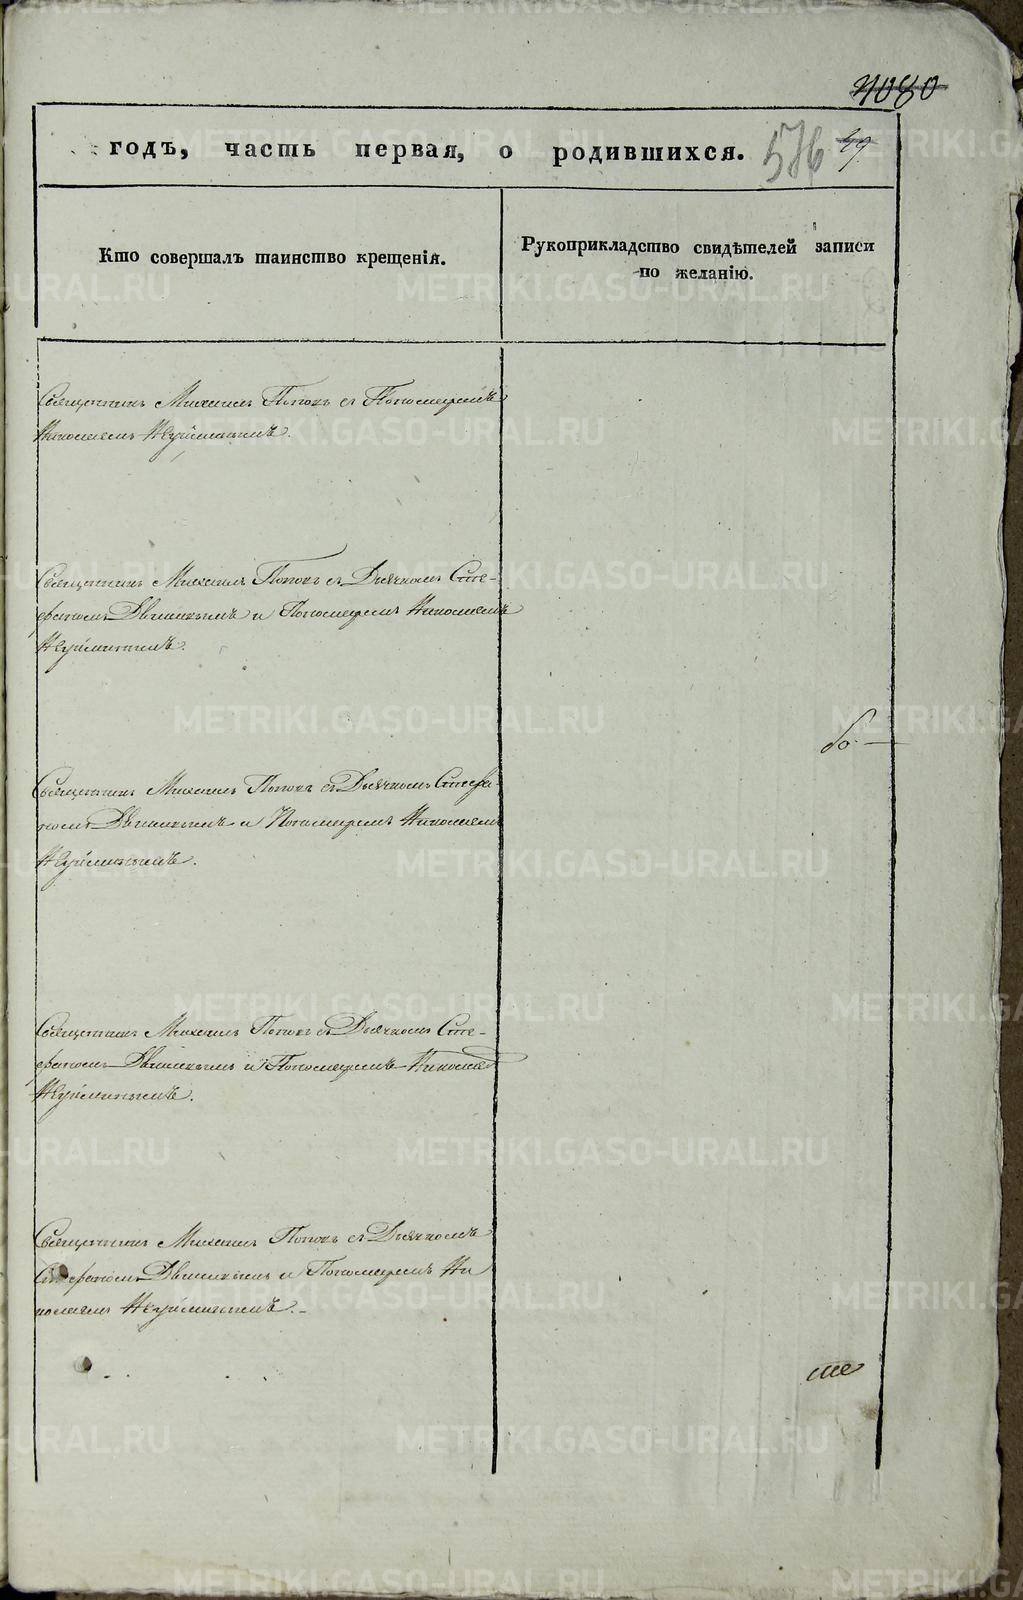 4080
годъ, часть первая, о родившихся. 576 49
Кто совершалъ таинство крещенія.
Рукоприкладство свидѣтелей записи
по желанію.
Священникъ Михаилъ Поповъ съ Пономаремъ
Николаемъ Неуйминымъ.
Священникъ Михаилъ Поповъ съ Дьячкомъ Сте-
фаномъ Двининымъ и Пономаремъ Николаемъ
Неуйминымъ.
бо
Священникъ Михаилъ Поповъ съ Дьячкомъ Стефа-
номъ Двининымъ и Пономаремъ Николаемъ
Неуйминымъ.
Священникъ Михаилъ Поповъ съ Дьячкомъ Сте-
фаномъ Двининымъ и Пономаремъ Николаемъ
Неуйминымъ.
Священникъ Михаилъ Поповъ съ Дьячкомъ
Стефаномъ Двининымъ и Пономаремъ Ни
колаемъ Неуйминымъ.
METRIKI.GASO-URAL.RU